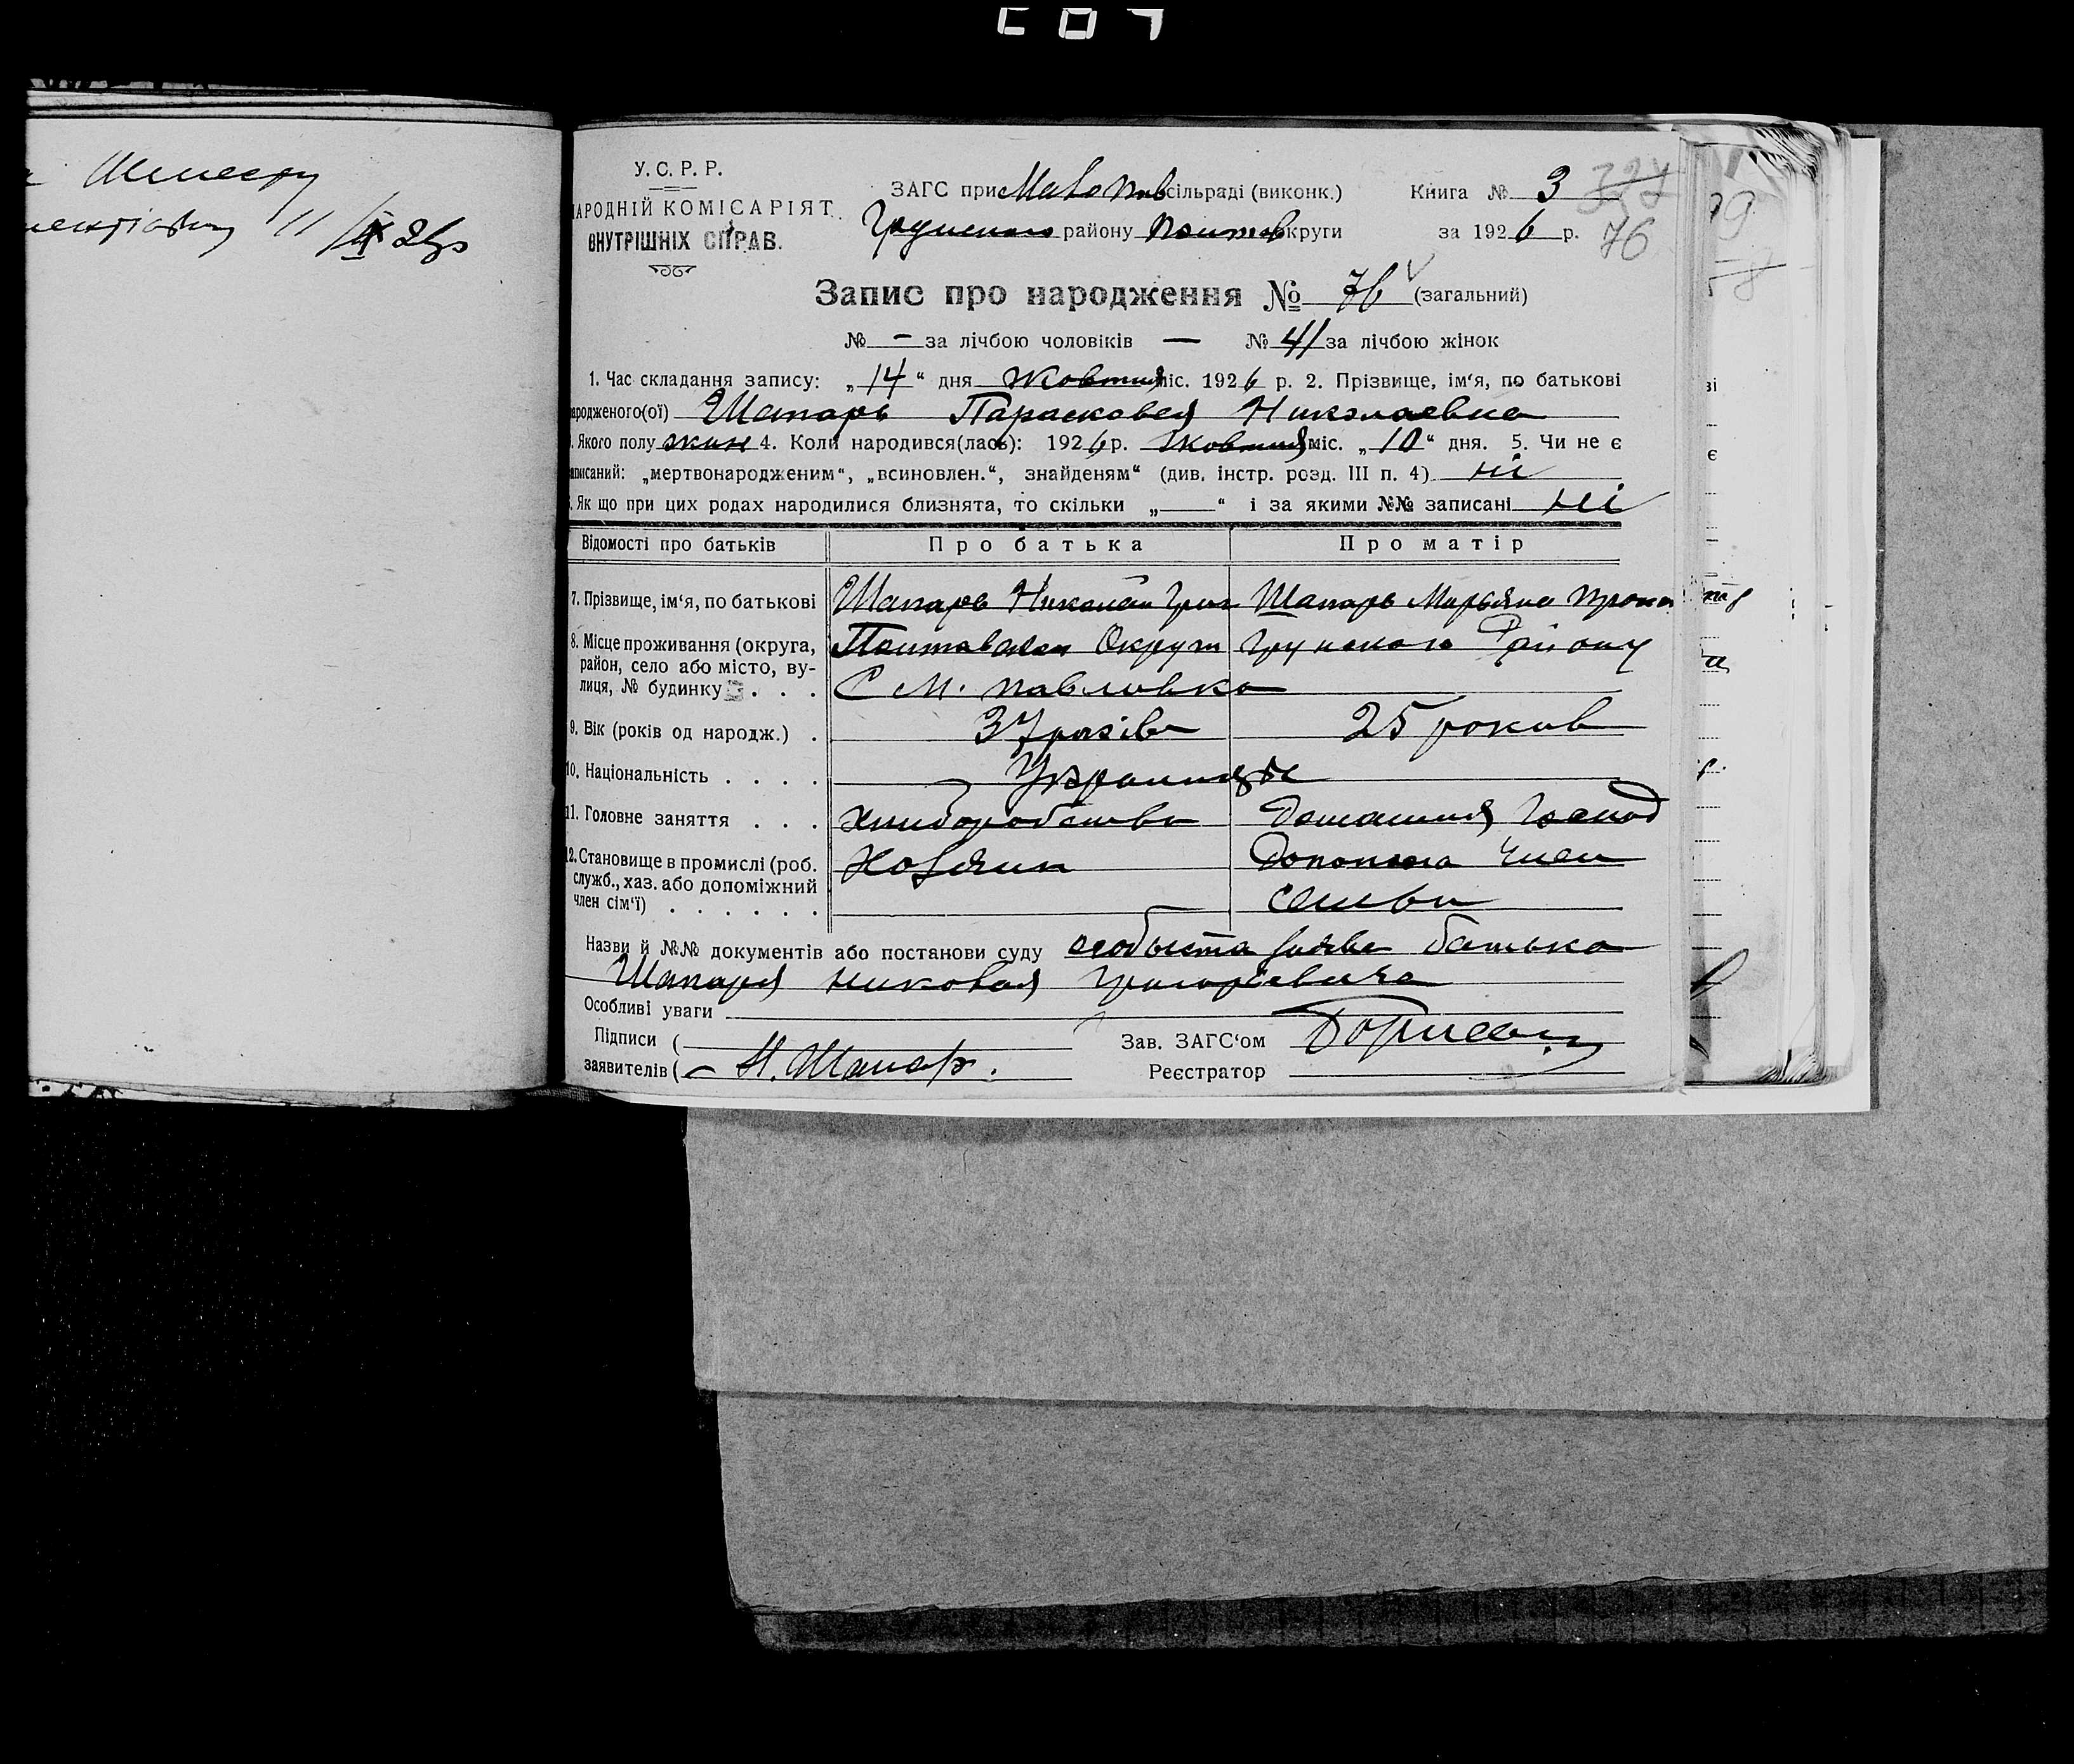 Шапару
11/IX 28р
У. С. Р. Р.
НАРОДНІЙ КОМІСАРІЯТ
ВНУТРІШНІХ СПРАВ.
ЗАГС при Мало Пав сільраді (виконк.)
Грунського району Полтав округи
Книга № 3 327
за 1926 р. 76
Запис про народження № 76 (загальний)
№ – за лічбою чоловіків — № 41 за лічбою жінок
1. Час складання запису: „14“ дня Жовтня міс. 1926 р. 2. Прізвище, ім‘я, по батькові
народженого(ої) Шапарь Парасковея Николаевна
3. Якого полу жин 4. Коли народився(лась): 1926 р. Жовтня міс. „10“ дня. 5. Чи не є
записаний: „мертвонародженим“, „всиновлен.“, знайденям“ (див. інстр. розд. III п. 4) ні
6. Як що при цих родах народилися близнята, то скільки „ “ і за якими №№ записані ні
Відомості про батьків Про батька Про матір
7. Прізвище, ім‘я, по батькові Шапарь Николай Григ Шапарь Марьяна Проко
8. Місце проживання (округа, район, село або місто, вулиця, № будинку) . . . Полтавскои Округи Грунского Району
С М. Павловка
9. Вік (років од народж.) . 37 років 25 роков
10. Національність . . . . Украинцы
11. Головне заняття . . . Хлиборобство Домашня Господ
12. Становище в промислі (роб. служб., хаз. або допоміжний член сім‘ї) . . . . . . Хозяин Допомога Член
семьи
Назви й №№ документів або постанови суду особыста заява батька
Шапаря Николая Григорьевича
Особливі уваги
Підписи ( Зав. ЗАГС‘ом
заявителів ( – Н. Шапарь. Реєстратор